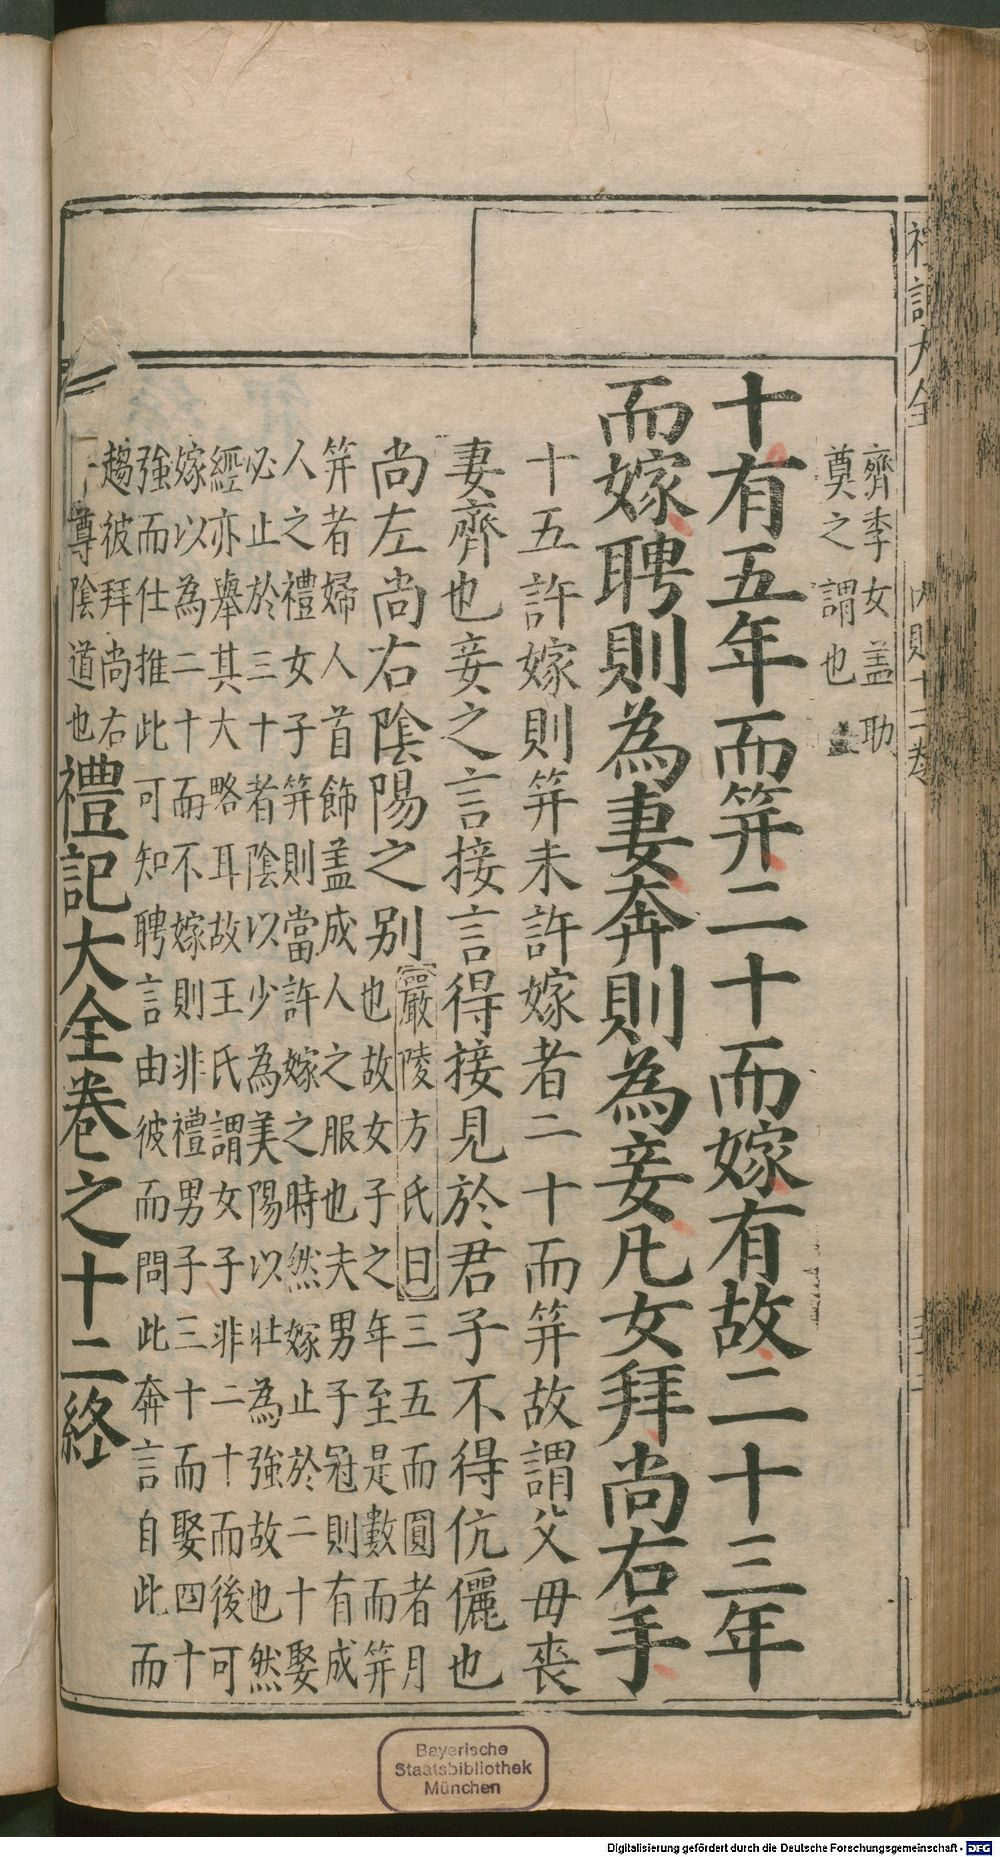 禮記大全
內則十二卷
齊季女蓋助
奠之謂也
十有五年而笄二十而嫁有故二十三年
而嫁聘則為妻奔則為妾凡女拜尚右手
十五許嫁則笄未許嫁者二十而笄故謂父母喪
妻齊也妾之言接言得接見於君子不得伉儷也
尚左尚右陰陽之别
嚴陵方氏曰三五而圓者月
也故女子之年至是數而笄
笄者婦人首飾盖成人之服也夫男子冠則有成
人之禮女子笄則當許嫁之時然嫁止於二十娶
必止於三十者陰以少為美陽以壯為強故也然
經亦舉其大略耳故王氏謂女子非二十而後可
嫁以為二十而不嫁則非禮男子三十而娶四十
強而仕推此可知聘言由彼而問此奔言自此而
趨彼拜尚右
尊陰道也
禮記大全卷之十二終
Bayerische
Staatsbibliothek
München
Digitalisierung gefördert durch die Deutsche Forschungsgemeinschaft - DFG